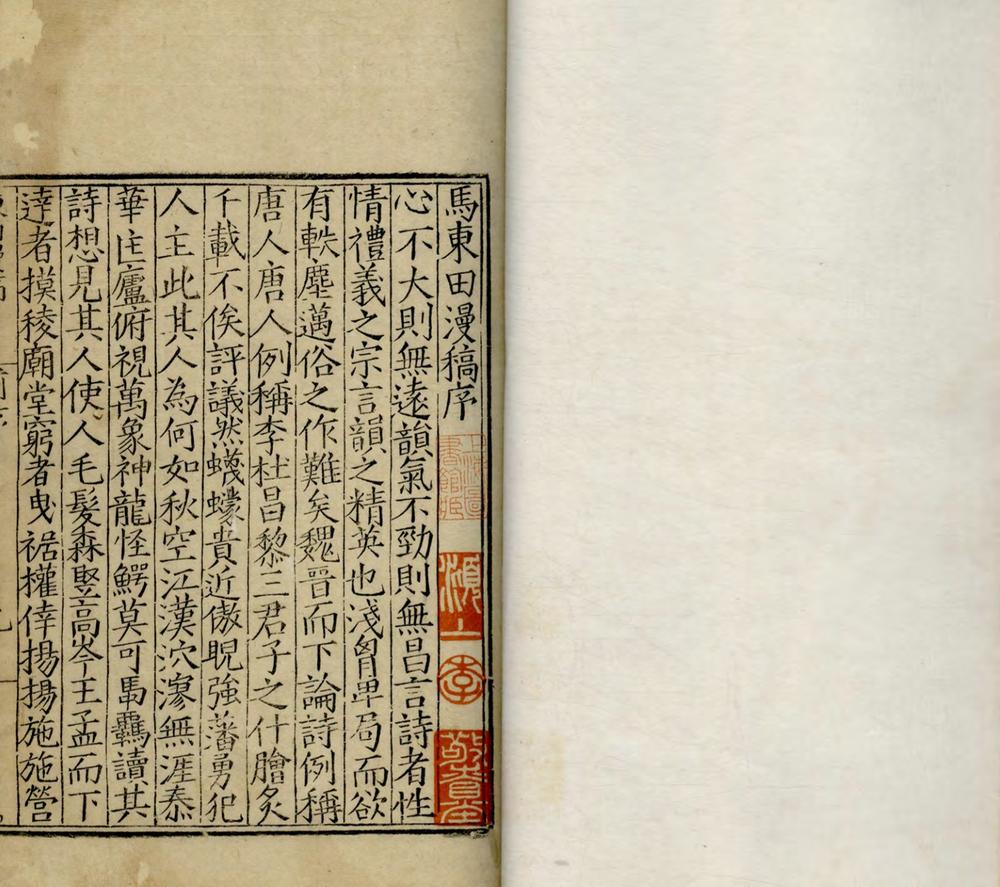 馬東田漫稿序
心不大則無遠韻氣不勁則無昌言詩者性
情禮義之宗言韻之精英也淺胷卑局而欲
有軼塵邁俗之作難矣魏晋而下論詩例稱
唐人唐人例稱李杜昌黎三君子之什膾炙
千載不俟評議然蠛蠓貴近傲睨強藩勇犯
人主此其人為何如秋空江漢泬漻無涯泰
華匡廬俯視萬象神龍怪鰐莫可馽羈讀其
詩想見其人使人毛髮森竪高岑王孟而下
達者摸稜廟堂窮者曳裾權倖揚揚施施營